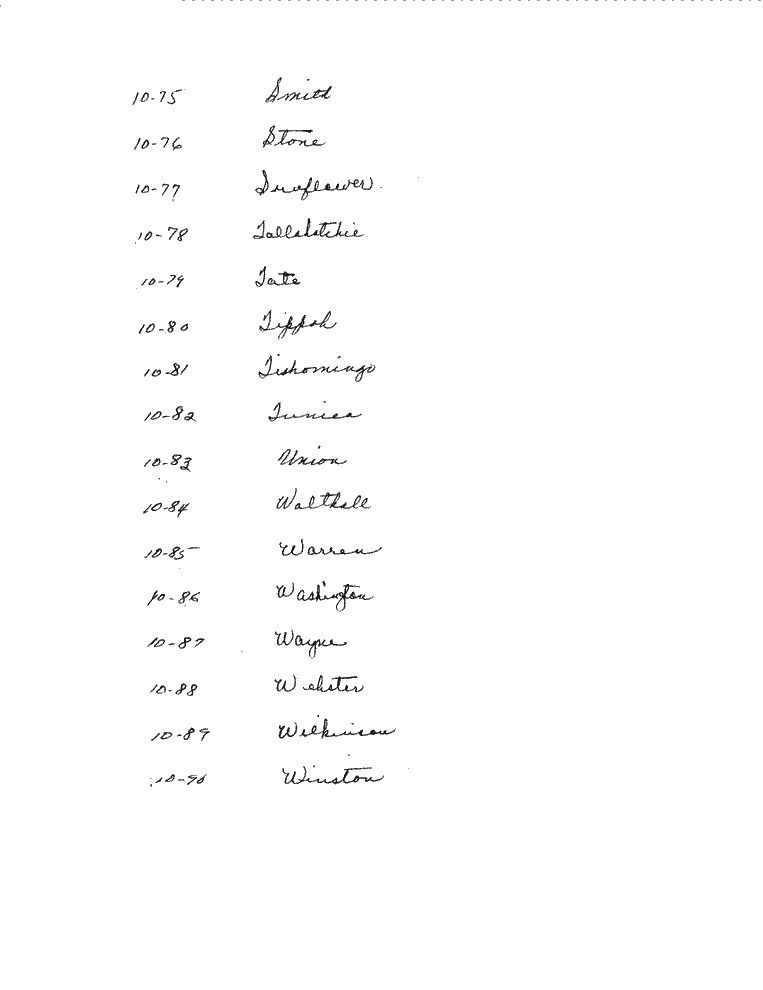 10-75 Smith
10-76 Stone
10-77 Sunflower
10-78 Tallahatchie
10-79 Tate
10-80 Tippah
10-81 Tishomingo
10-82 Tunica
10-83 Union
10-84 Walthall
10-85 Warren
10-86 Washington
10-87 Wayne
10-88 Webster
10-89 Wilkinson
10-90 Winston